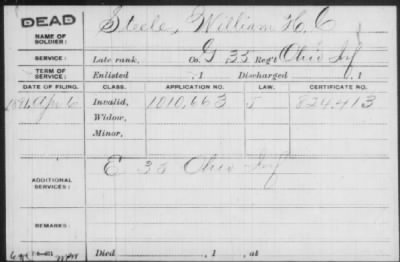 DEAD
NAME OF SOLDIER: Steele, William H. C
SERVICE: Late rank, Co. G, 35 Reg't Ohio Inf
TERM OF SERVICE: Enlisted , 1 Discharged , 1
DATE OF FILING. CLASS. APPLICATION NO. LAW. CERTIFICATE NO.
1891, Apr 6 Invalid, 1010,663 J 824,413
Widow,
Minor,
ADDITIONAL SERVICES: E 35 Ohio Inf
REMARKS:
Died , 1 , at